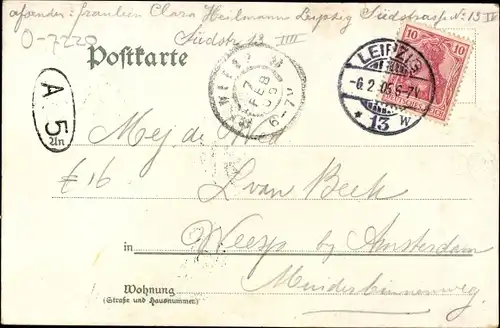 afzender: fraulein Clara Heilmann Leipzig Südstrasse No 13 IV
Südstr 13 IIII
O-7220
Postkarte
10 10
LEIPZIG
-6.2.05 6-7V
* 13 w
WEESP
7 FEB 05
6-7V
A
5
Un
Mej. de Wed
£ 16
L van Beek
in Weesp by Amsterdam
Wohnung
(Straße und Hausnummer)